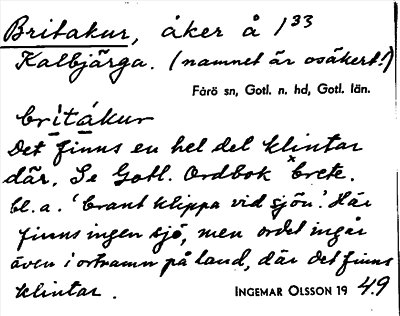 Britakur, åker å 1³³
Kalbjärga. (namnet är osäkert!)
Fårö sn, Gotl. n. hd, Gotl. län.
britákur
Det finns en hel del klintar
där. Se Gotl. Ordbok ˣbrete.
bl.a. 'brant klippa vid sjön'. Här
finns ingen sjö, men ordet ingår
även i ortnamn på land, där det finns
klintar.
INGEMAR OLSSON 19 49